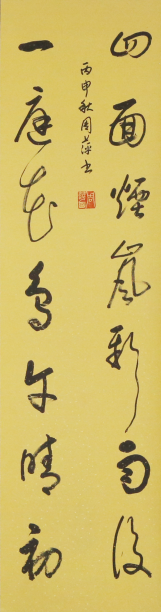 四面煙嵐新雨後
一庭花鳥午晴初
丙申秋周萍書